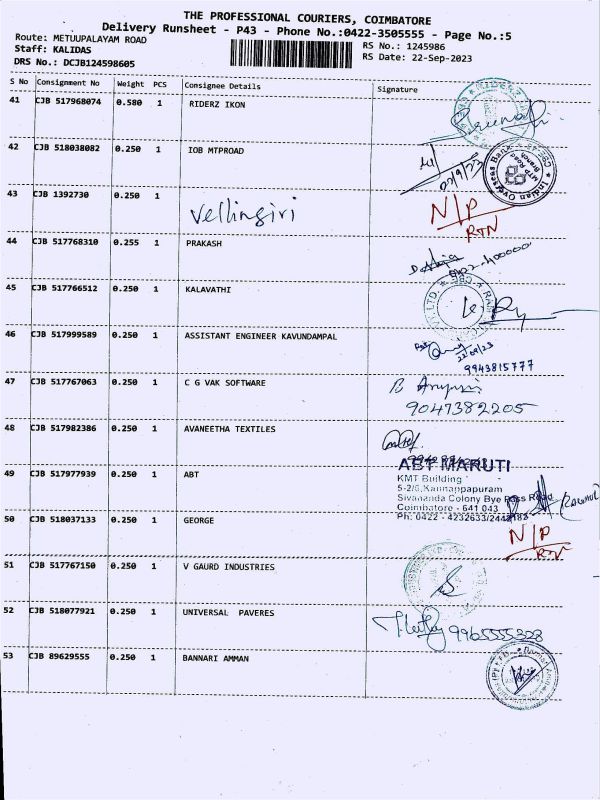 THE PROFESSIONAL COURIERS, COIMBATORE
Delivery Runsheet - P43 - Phone No.:0422-3505555 - Page No.:5
Route: METUUPALAYAM ROAD
RS No.: 1245986
Staff: KALIDAS
RS Date: 22-Sep-2023
DRS No.: DCJB124598605
S No Consignment No Weight PCS Consignee Details Signature
41 CJB 517968074 0.580 1 RIDERZ IKON
42 CJB 518038082 0.250 1 IOB MTPROAD
Indian Overseas Bank
MTP Road
Branch
43 CJB 1392730 0.250 1 Vellingiri N/P
RTN
44 CJB 517768310 0.255 1 PRAKASH
45 CJB 517766512 0.250 1 KALAVATHI
46 CJB 517999589 0.250 1 ASSISTANT ENGINEER KAVUNDAMPAL
22/09/23
9943815777
47 CJB 517767063 0.250 1 C G VAK SOFTWARE
9047382205
48 CJB 517982386 0.250 1 AVANEETHA TEXTILES
49 CJB 517977939 0.250 1 ABT
ABT MARUTI
KMT Building
5-2/6,Kannappapuram
Sivananda Colony Bye Pass Road
Coimbatore - 641 043
Ph: 0422 - 4232633/
50 CJB 518037133 0.250 1 GEORGE N/P
RTN
51 CJB 517767150 0.250 1 V GAURD INDUSTRIES
52 CJB 518077921 0.250 1 UNIVERSAL PAVERES
9965555328
53 CJB 89629555 0.250 1 BANNARI AMMAN